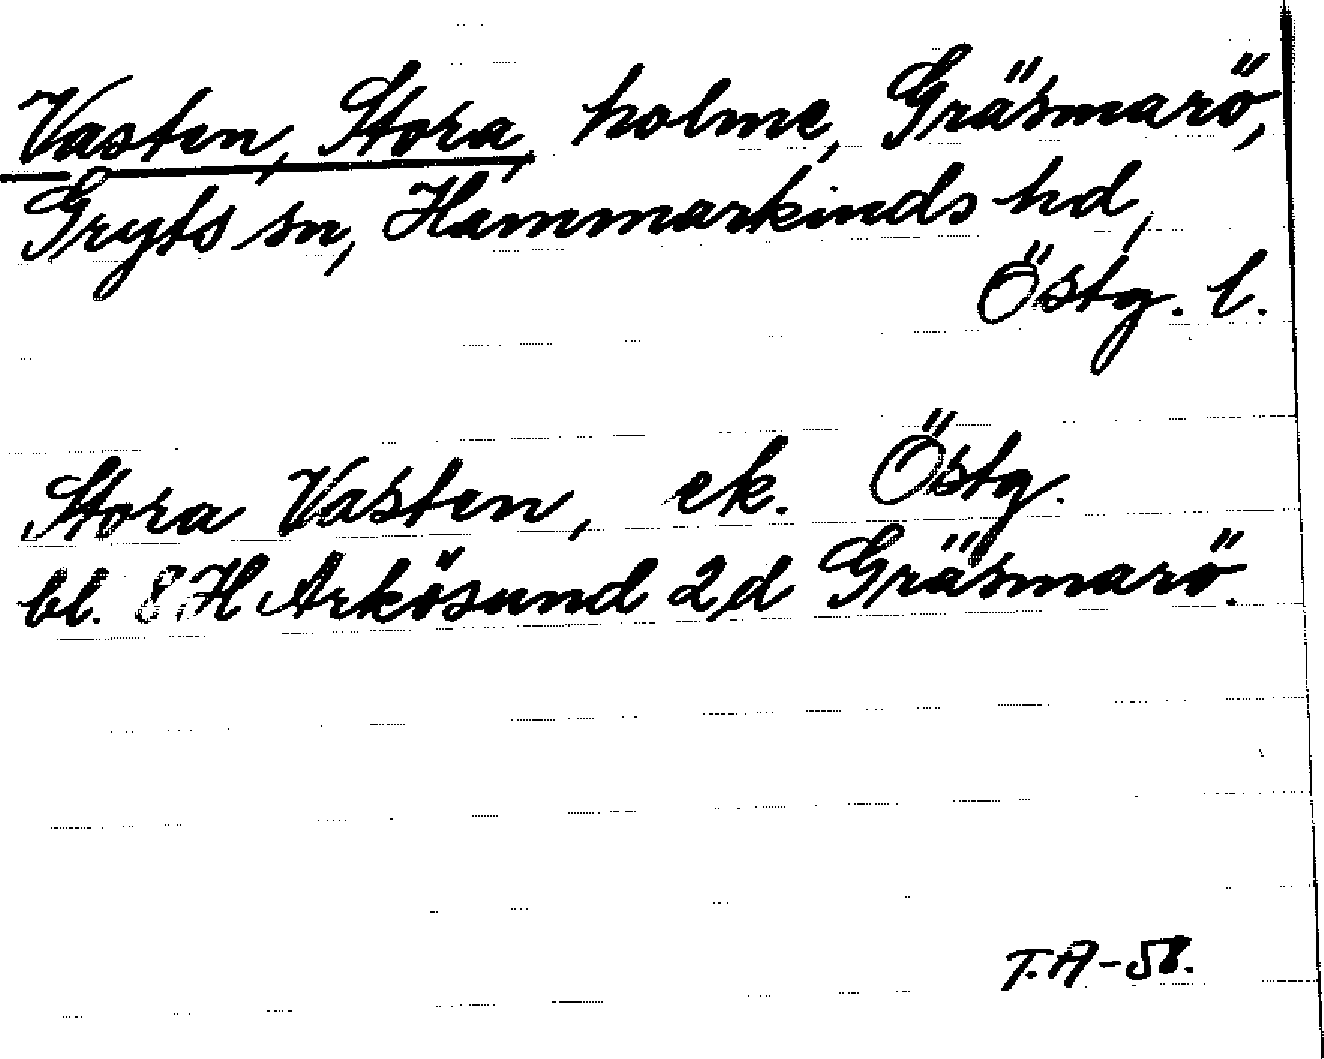 Vasten, Stora, holme, Gräsmarö,
Gryts sn, Hammarkinds hd,
Östg. l.
Stora Vasten, ek. Östg.
bl. 8 H Arkösund 2,d Gräsmarö.
T.A-58.